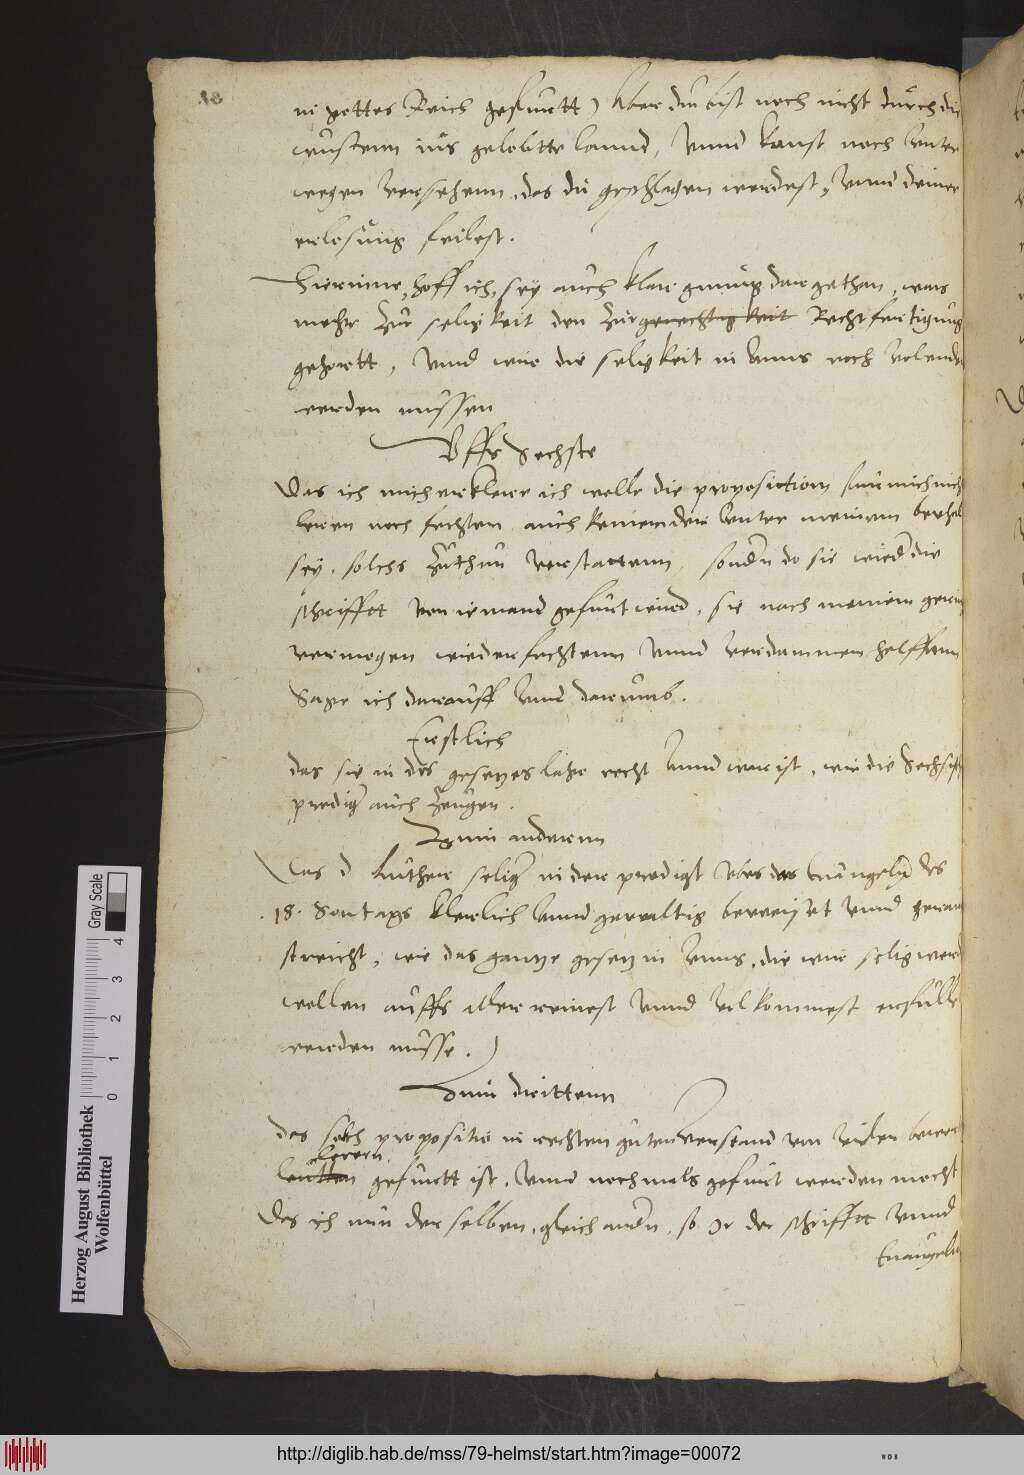 in gottes Reich gefurtt) Aber du bist noch nicht durch die
wusten ins gelobtte lannd, Vnnd kanst noch Vnter
wegen versehenn, das du geschlagen werdest, Vnnd deiner
erlosung feilest.
Hierinne, hoff ich, sey auch klar gnung dargethan, was
mehr zur seligkeit den zur gerechtigkeit Rechtfertigung
gehortt, Vnnd wie die seligkeit in Vnns noch volendet
werden mussen
Vffs Sechste
Das ich mich erklere ich wolle die proposition furnicht
leren noch fechten auch keinem der Vnter meinem
sey, solchs zuthun verstattenn, sondern do sie wieder die
schrifft von iemand gefurt wird, sie nach meinem
vermogen wiederfechtenn Vnnd verdammen helffenn
Sage ich darauff Vnnd darumb.
Erstlich
das sie in des gesetzes lahre recht Vnnd war ist, wie die Sechste
predigt auch zeugen.
Zum anderenn
Das D Luther selig in der predigt vber das Euangely des
18. Sontags klerlich Vnnd gewaltig beweiset Vnnd
streicht, wie das gantze gesetz in Vnns, die wir selig werden
wollen auffs aller reinest Vnnd volkommest erfulle
werden musse.)
Zum drittenn
das solch propositio in rechten guten verstand von vielen
lerern
leutten gefurtt ist, Vnnd nochmals gefurt werden mocht
Das ich nun der selben, gleich andern, so der schrifft Vnnd
Euangelii
Gray Scale
0 1 2 3 4
Herzog August Bibliothek
Wolfenbüttel
http://diglib.hab.de/mss/79-helmst/start.htm?image=00072